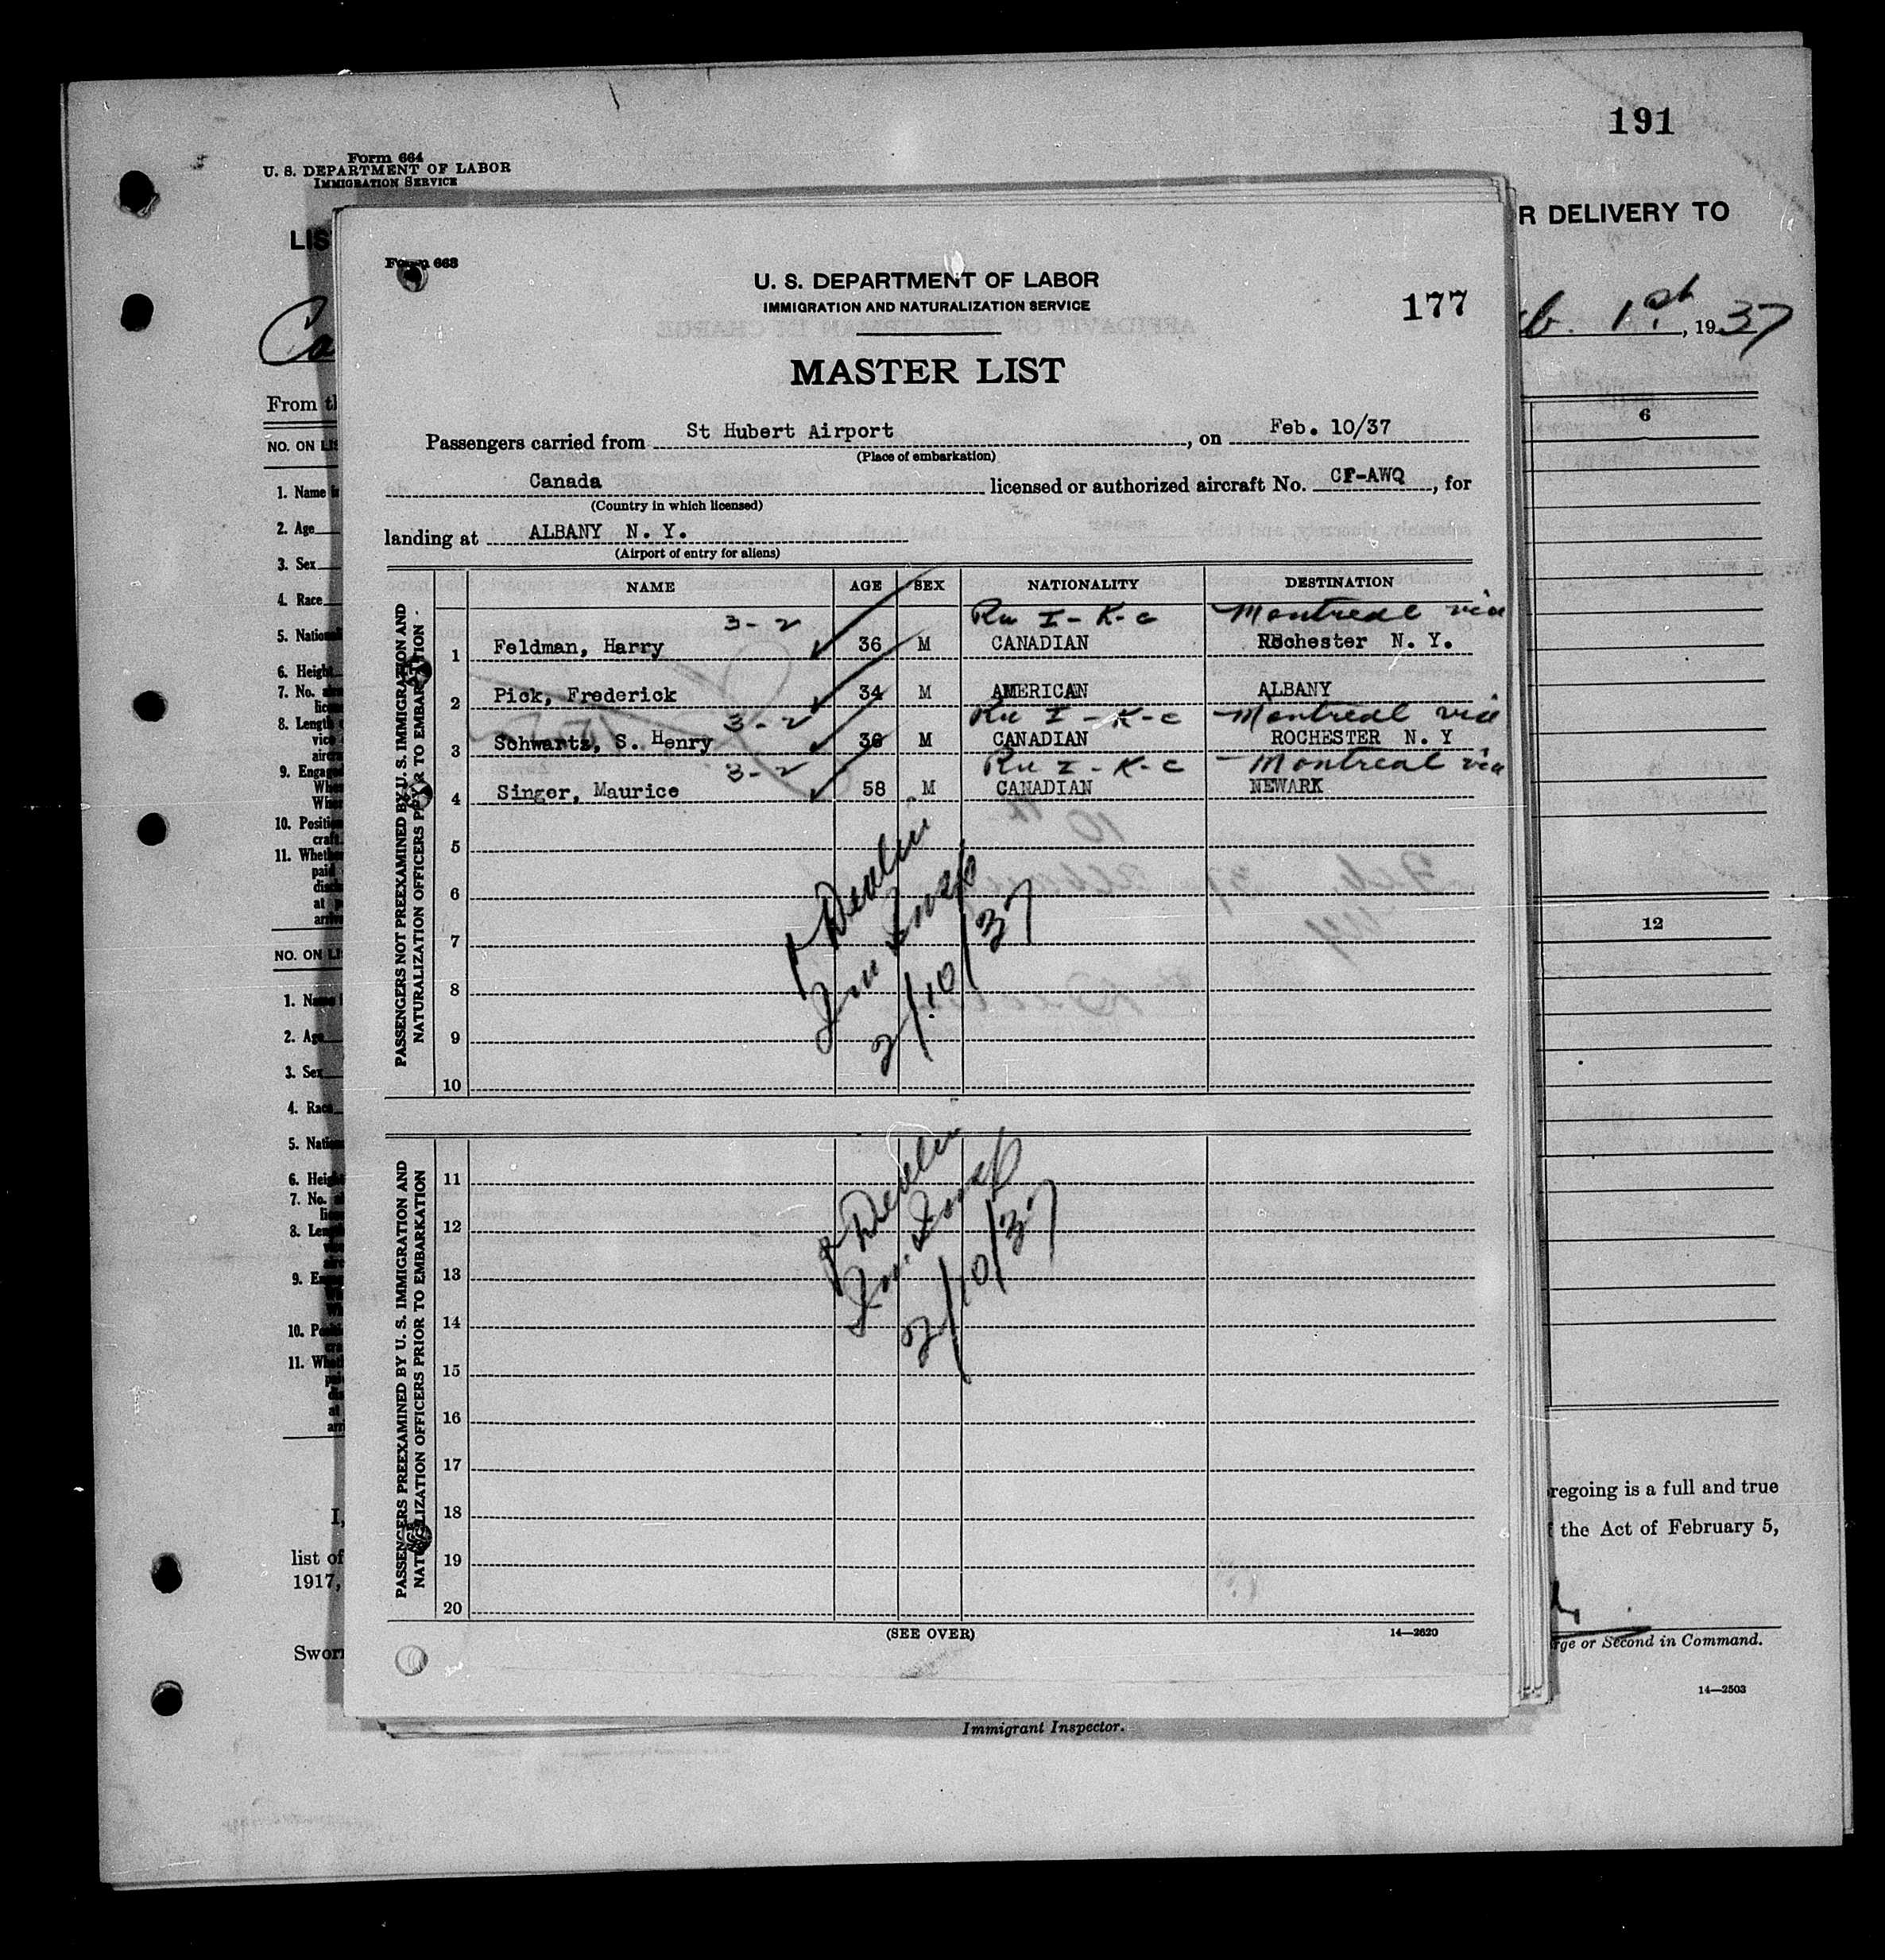 191
Form 664
U. S. DEPARTMENT OF LABOR
IMMIGRATION SERVICE
R DELIVERY TO
1st, 1937
From
NO. ON
1. Name
2. Age
3. Sex
4. Race
5.
6. Height
7. No.
8. Length
9.
10.
11.
6
NO. ON
1.
2.
3. Sex
4.
5.
6.
7. No.
8.
9.
10.
11.
12
Form 668
U. S. DEPARTMENT OF LABOR
IMMIGRATION AND NATURALIZATION SERVICE
177
MASTER LIST
Passengers carried from St Hubert Airport, on Feb. 10/37
(Place of embarkation)
Canada licensed or authorized aircraft No. CF-AWQ, for
(Country in which licensed)
landing at ALBANY N. Y.
(Airport of entry for aliens)
NAME AGE SEX NATIONALITY DESTINATION
PASSENGERS NOT PREEXAMINED BY U. S. IMMIGRATION AND
NATURALIZATION OFFICERS PRIOR TO EMBARKATION
3-2 I-K-c Montreal via
1 Feldman, Harry 36 M CANADIAN Rochester N. Y.
2 Pick, Frederick 34 M AMERICAN ALBANY
3-2 I-K-c Montreal via
3 Schwartz, S. Henry 36 M CANADIAN ROCHESTER N. Y
3-2 I-K-c Montreal via
4 Singer, Maurice 58 M CANADIAN NEWARK
5
6
7
8
9
10
Devlin
Imm Insp
2/10/37
PASSENGERS PREEXAMINED BY U. S. IMMIGRATION AND
NATURALIZATION OFFICERS PRIOR TO EMBARKATION
11
12
13
14
15
16
17
18
19
20
Devlin
Im. Insp
2/10/37
(SEE OVER)
14—2620
regoing is a full and true
the Act of February 5,
I,
list of
1917,
or Second in Command.
14—2503
Immigrant Inspector.